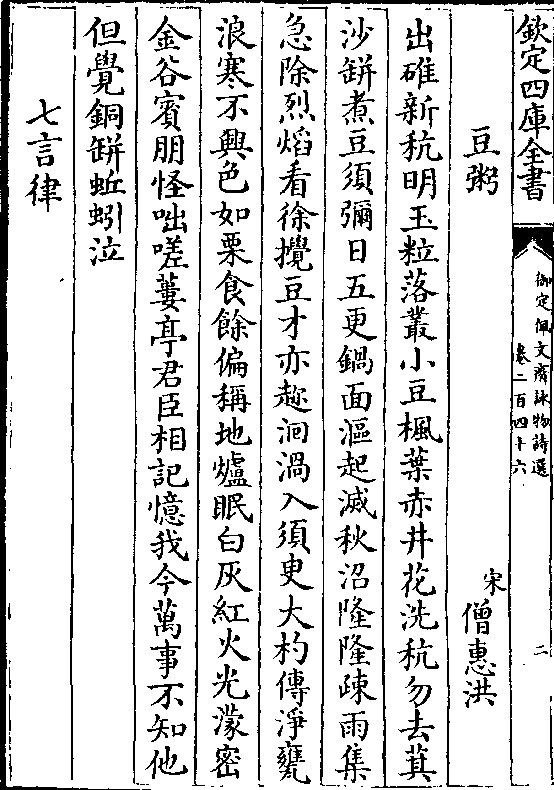 欽定四庫全書
御定佩文齋詠物詩選
卷二百四十六
二
豆粥
宋
僧惠洪
出碓新秔明玉粒落叢小豆楓葉赤井花洗秔勿去萁
沙缾煮豆須彌日五更鍋面漚起滅秋沼隆隆疎雨集
急除烈熖看徐攪豆才亦趂洄渦入須臾大杓傳淨甕
浪寒不興色如栗食餘偏稱地爐眠白灰紅火光濛密
金谷賓朋怪咄嗟蔞亭君臣相記憶我今萬事不知他
但覺銅缾蚯蚓泣
七言律